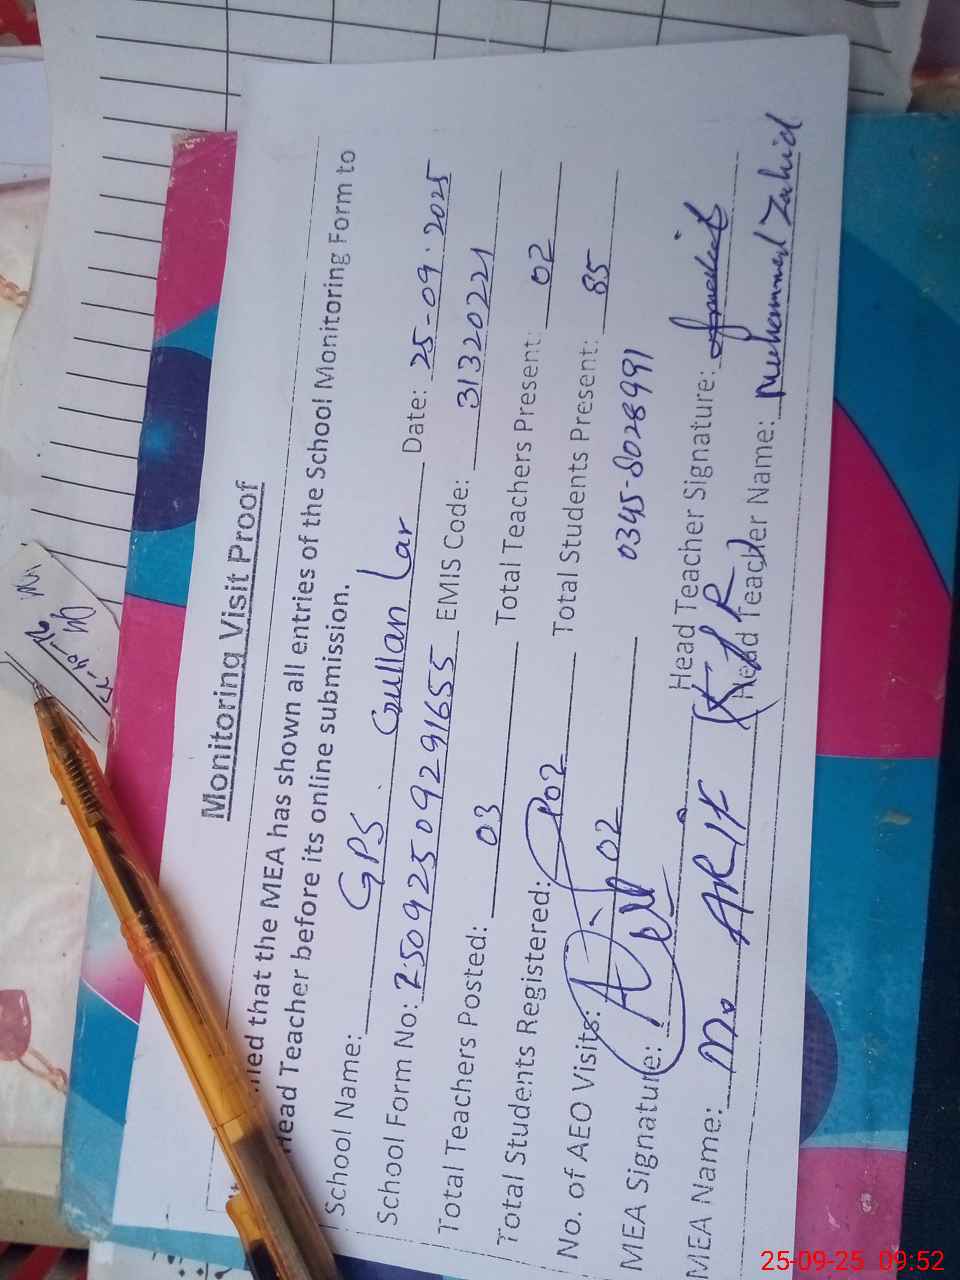 Monitoring Visit Proof
that the MEA has shown all entries of the School Monitoring Form to
Head Teacher before its online submission.
School Name: GPS. Gullan Lar Date: 25-09.2025
School Form No: 25092509291655 EMIS Code: 31320221
Total Teachers Posted: 03 Total Teachers Present: 02
Total Students Registered: 102 Total Students Present: 85
No. of AEO Visits: 02 0345-8028991
MEA Signature: Head Teacher Signature:
MEA Name: M. ARIF Head Teacher Name: Muhammad Zahid
25-09-25 09:52